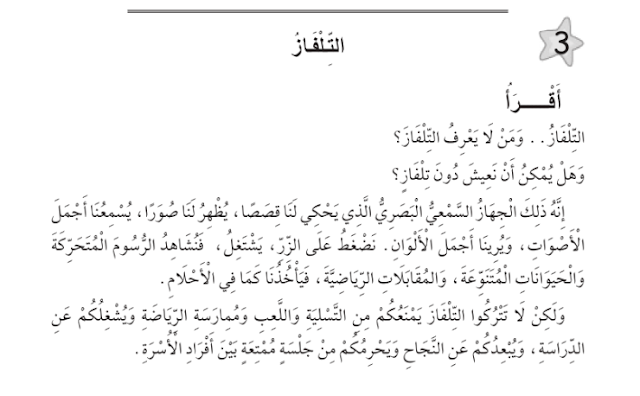 3
التِّلْفَازُ
أَقْـــرَأُ
التِّلْفَازُ.. وَمَنْ لَا يَعْرِفُ التِّلْفَازَ؟
وَهَلْ يُمْكِنُ أَنْ نَعِيشَ دُونَ تِلْفَازٍ؟
إِنَّهُ ذَلِكَ الْجِهَازُ السَّمْعِيُّ الْبَصَرِيُّ الَّذِي يَحْكِي لَنَا قِصَصًا، يُظْهِرُ لَنَا صُوَرًا، يُسْمِعُنَا أَجْمَلَ
الْأَصْوَاتِ، وَيُرِينَا أَجْمَلَ الْأَلْوَانِ. نَضْغَطُ عَلَى الزِّرِّ، يَشْتَغِلُ، فَنُشَاهِدُ الرُّسُومَ الْمُتَحَرِّكَةَ
وَالْحَيَوَانَاتِ الْمُتَنَوِّعَةَ، وَالْمُقَابَلَاتِ الرِّيَاضِيَّةَ، فَيَأْخُذُنَا كَمَا فِي الْأَحْلَامِ.
وَلَكِنْ لَا تَتْرُكُوا التِّلْفَازَ يَمْنَعُكُمْ مِنَ التَّسْلِيَةِ وَاللَّعِبِ وَمُمارَسَةِ الرِّيَاضَةِ وَيُشْغِلُكُمْ عَنِ
الدِّرَاسَةِ، وَيُبْعِدُكُمْ عَنِ النَّجَاحِ وَيَحْرِمُكُمْ مِنْ جَلْسَةٍ مُمْتِعَةٍ بَيْنَ أَفْرَادِ الْأُسْرَةِ.